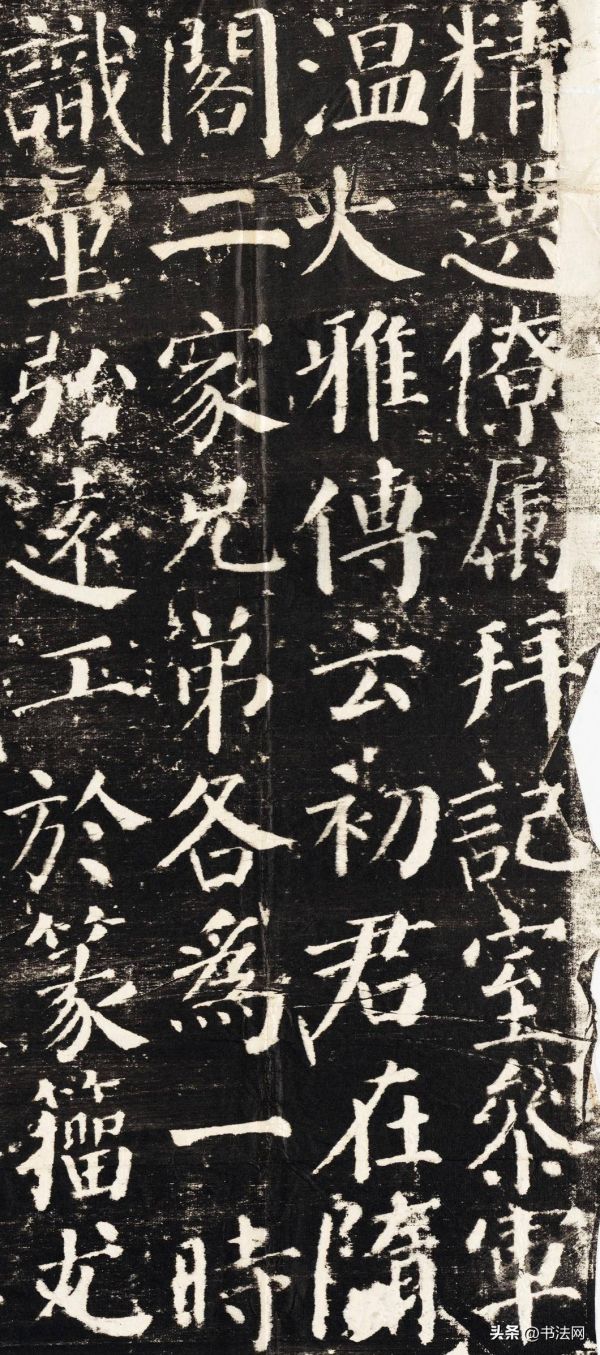 精選僚属拜記室叅軍
温大雅傳云初君在隋
閣二家兄弟各爲一時
識量弘遠工於篆籀尤
头条 @书法网